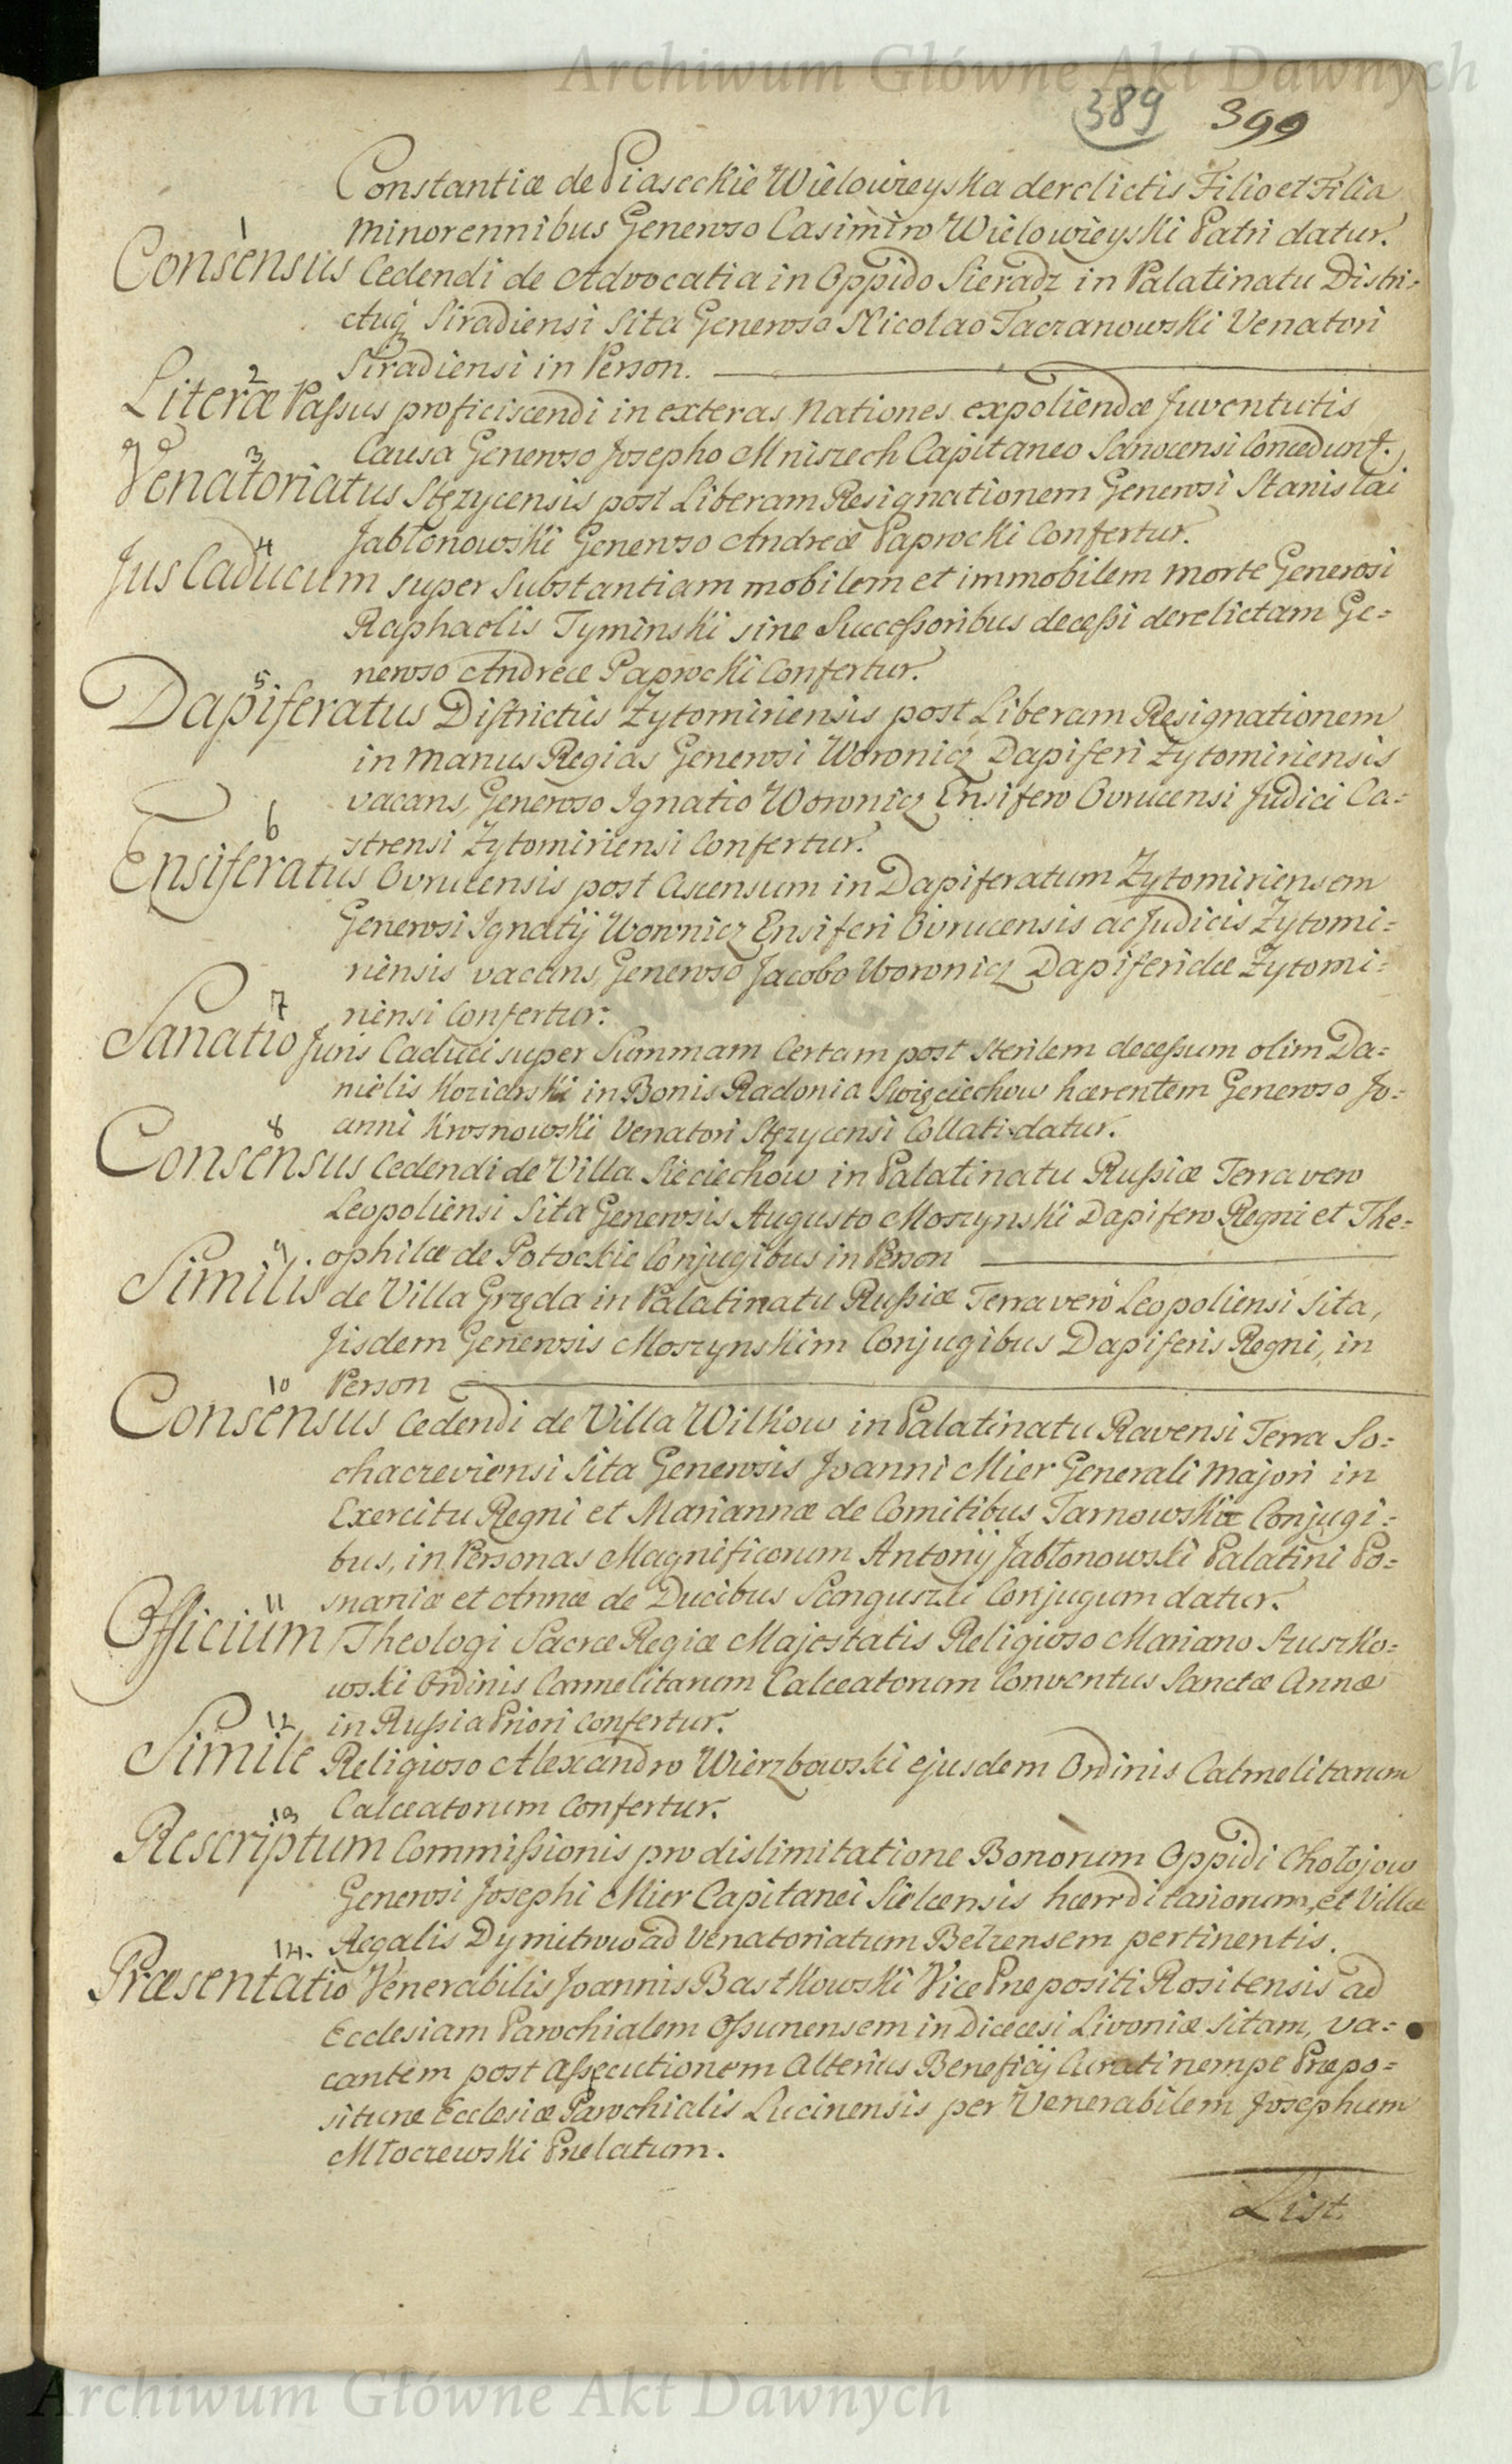 Archiwum Główne Akt Dawnych
389 399
Constantiæ de Piaseckie Wielowieyska derelictis Filio et Filia
minorennibus Generoso Casimiro Wielowieyski Patri datur.
1
Consensus Cedendi de Advocatia in Oppido Sieradz in Palatinatu Distri=
ctuq Siradiensi Sita Generoso Nicolao Taczanowski Venatori
Siradiensi in Person.
2
Literæ Passus proficiscendi in exteras Nationes expoliendæ Juventutis
Causa Generoso Josepho Mniszech Capitaneo Sanocensi Concedunt.
3
Venatoriatus Stęzycensis post Liberam Resignationem Generosi Stanislai
Jabłonowski Generoso Andreæ Paprocki Confertur.
4
Jus Caducum super Substantiam mobilem et immobilem morte Generosi
Raphaelis Tyminski sine Successoribus decessi derelictam Ge=
neroso Andreæ Paprocki Confertur.
5
Dapiferatus Districtus Zytomiriensis post Liberam Resignationem
in manus Regias Generosi Woronicz Dapiferi Zytomiriensis
vacans, Generoso Ignatio Woronicz Ensifero Ovrucensi Judici Ca=
strensi Zytomiriensi Confertur.
6
Ensiferatus Ovrucensis post Ascensum in Dapiferatum Zytomiriensem
Generosi Ignatij Woronicz Ensiferi Ovrucensis ac Judicis Zytomi=
riensis vacans, Generoso Jacobo Woronicz Dapiferidæ Zytomi=
riensi Confertur.
7
Sanatio Juris Caduci super Summam Certam post sterilem decessum olim Da=
nielis Koziarski in Bonis Radonia Swięciechow hærentem Generoso Jo=
anni Krosnowski Venatori Stęzycensi Collati datur.
8
Consensus Cedendi de Villa Sieciechow in Palatinatu Russiæ Terra vero
Leopoliensi Sita Generosis Augusto Moszynski Dapifero Regni et The=
ophilæ de Potockie Conjugibus in Person
9.
Similis de Villa Grzęda in Palatinatu Russiæ Terra vero Leopoliensi Sita,
Jisdem Generosis Moszynskim Conjugibus Dapiferis Regni, in
Person
10
Consensus Cedendi de Villa Wilkow in Palatinatu Ravensi Terra So=
chaczeviensi Sita Generosis Joanni Mier Generali Majori in
Exercitu Regni et Mariannæ de Comitibus Tarnowskie Conjugi=
bus, in Personas Magnificorum Antonij Jabłonowski Palatini Po=
snaniæ et Annæ de Ducibus Sanguszki Conjugum datur.
11
Officium Theologi Sacræ Regiæ Majestatis Religioso Mariano Szuszko=
wski Ordinis Carmelitarum Calceatorum Conventus Sanctæ Annæ
in Russia Priori Confertur.
12
Simile Religioso Alexandro Wierzbowski ejusdem Ordinis Calmelitarum
Calceatorum Confertur.
13
Rescriptum Commissionis pro dislimitatione Bonorum Oppidi Chołojow
Generosi Josephi Mier Capitanei Sielcensis hærditariorum, et Villæ
Regalis Dymitrow ad Venatoriatum Belzensem pertinentis.
14.
Præsentatio Venerabilis Joannis Bastkowski Vice Præpositi Rositensis ad
Ecclesiam Parochialem Ossunensem in Diœcesi Livoniæ sitam, va=
cantem post Assecutionem Alterius Beneficij Curati nempe Præpo=
situræ Ecclesiæ Parochialis Lucinensis per Venerabilem Josephum
Młoczewski Prælatum.
List.
Archiwum Główne Akt Dawnych